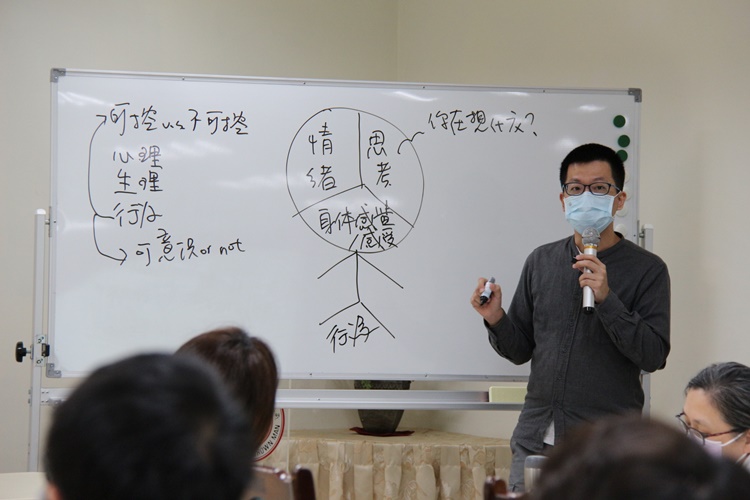 可控 vs 不可控
心理
生理
行为
可意识 or not
情绪
思考
身体感觉
/感受
行为
你在想什么?